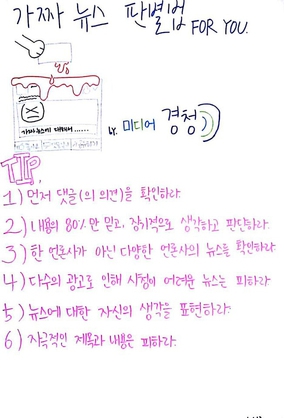 가짜 뉴스 판별법 FOR YOU.
가짜뉴스에 대해서 ......
by. 미디어 경청
TIP.
1) 먼저 댓글(의 의견)을 확인하라.
2) 내용의 80%만 믿고, 장기적으로 생각하고 판단하라.
3) 한 언론사가 아닌 다양한 언론사의 뉴스를 확인하라
4) 다수의 광고로 인해 시청이 어려운 뉴스는 피하라
5) 뉴스에 대한 자신의 생각을 표현하라.
6) 자극적인 제목과 내용은 피하라.